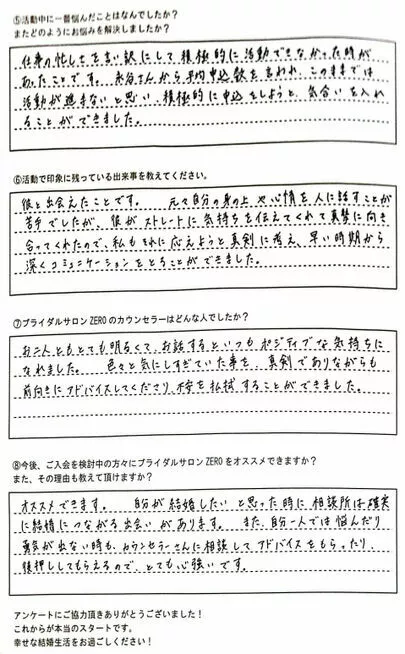 ⑤活動中に一番悩んだことはなんでしたか？
またどのようにお悩みを解決しましたか？
仕事の忙しさを言い訳にして積極的に活動できなかった時が
あったことです。永谷さんから平均申込数を言われ、このままでは
活動が進まないと思い、積極的に申込をしようと、気合いを入れ
ることができました。
⑥活動で印象に残っている出来事を教えてください。
彼と出会えたことです。 元々自分の身の上や心情を人に話すことが
苦手でしたが、彼がストレートに気持ちを伝えてくれて真摯に向き
合ってくれたので、私もそれに応えようと真剣に考え、早い時期から
深くコミュニケーションをとることができました。
⑦ブライダルサロンZEROのカウンセラーはどんな人でしたか？
お二人ともとても明るくて、お話するといつもポジティブな気持ちに
なれました。 色々と気にしすぎていた事を、真剣でありながらも
前向きにアドバイスしてくださり、不安を払拭することができました。
⑧今後、ご入会を検討中の方々にブライダルサロンZEROをオススメできますか？
また、その理由も教えて頂けますか？
オススメできます。 自分が結婚したいと思った時に相談所は確実
に結婚につながる出会いがあります。 また、自分一人では悩んだり
勇気が出ない時も、カウンセラーさんに相談してアドバイスをもらったり、
後押ししてもらえるので、とても心強いです。
アンケートにご協力頂きありがとうございました！
これからが本当のスタートです。
幸せな結婚生活をお過ごしください！